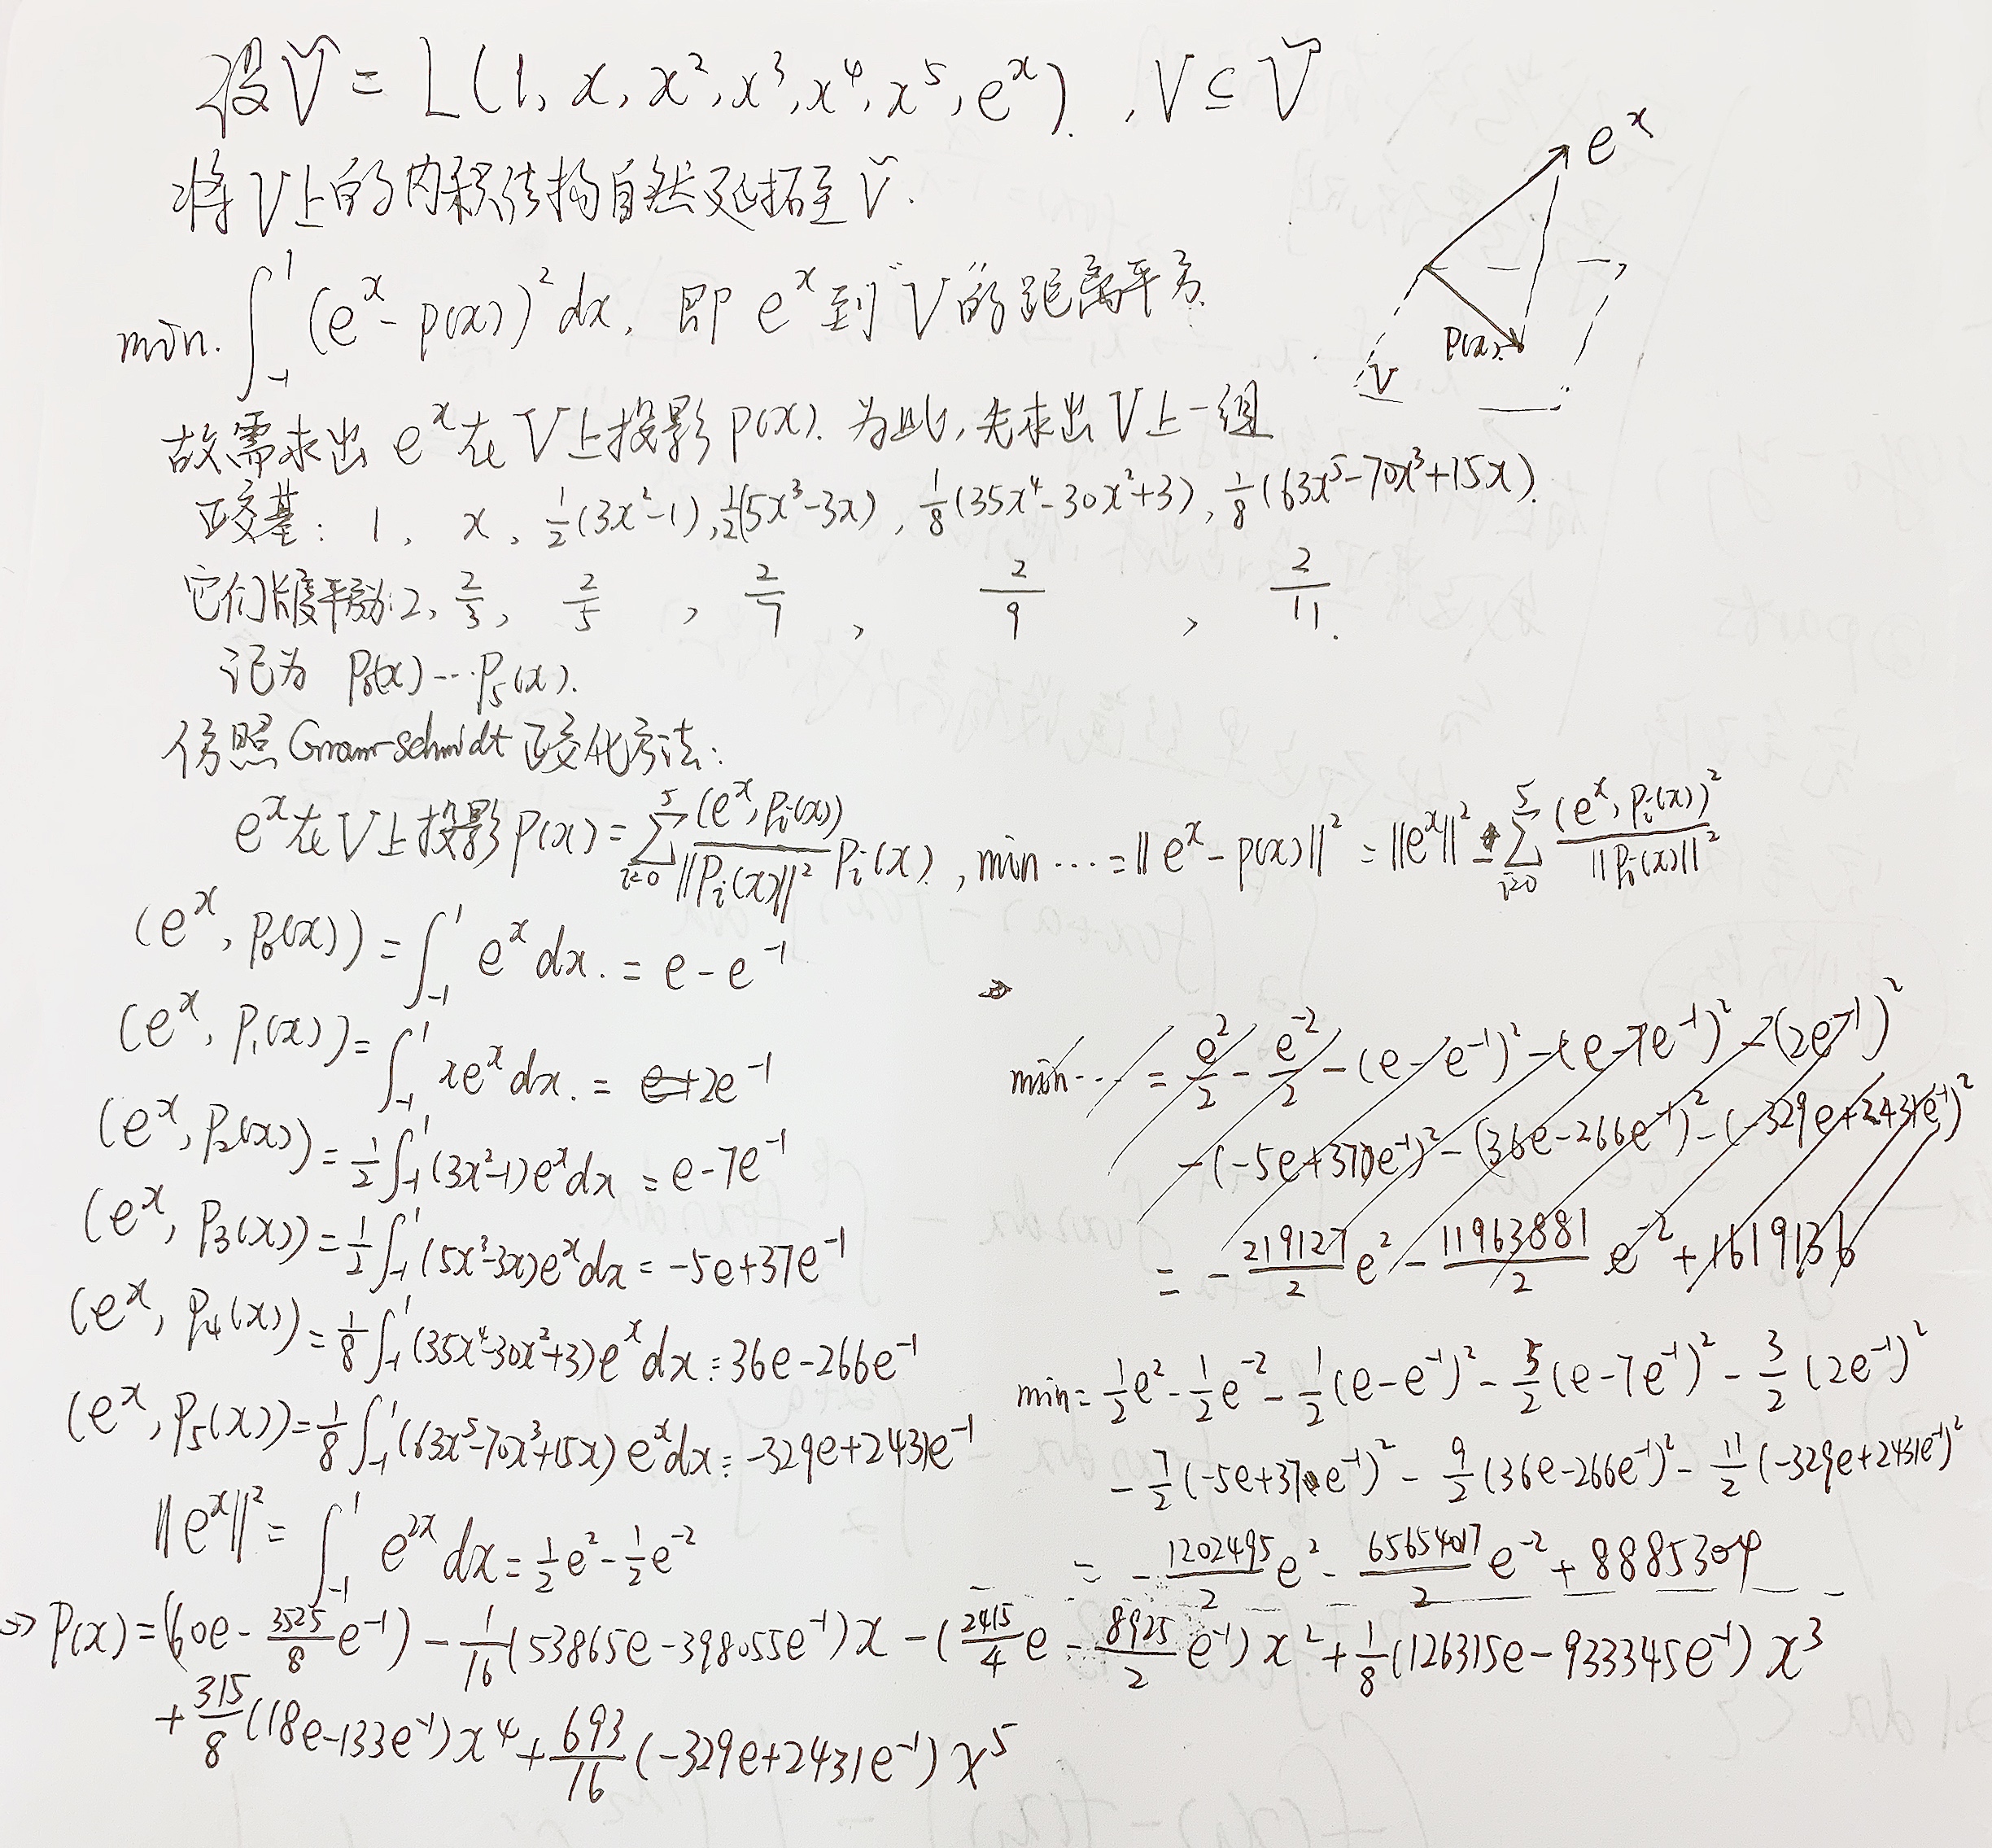 设Ṽ = L(1, x, x², x³, x⁴, x⁵, eˣ). , V ⊆ Ṽ
将V上的内积结构自然延拓至Ṽ.
min. ∫₋₁¹ (eˣ - p(x))² dx, 即 eˣ到"V"的距离平方.
eˣ
p(x).
V
故需求出 eˣ在V上投影 p(x). 为此, 先求出V上一组
正交基: 1, x, ½(3x²-1), ½(5x³-3x), ⅛(35x⁴-30x²+3), ⅛(63x⁵-70x³+15x).
它们长度平方为: 2, 2/3, 2/5, 2/7, 2/9, 2/11.
记为 P₀(x)…P₅(x).
仿照 Gram-Schmidt 正交化方法:
eˣ在V上投影 p(x) = ∑ᵢ₌₀⁵ (eˣ, Pᵢ(x))/‖Pᵢ(x)‖² Pᵢ(x). , min … = ‖eˣ - p(x)‖² = ‖eˣ‖² - ∑ᵢ₌₀⁵ (eˣ, Pᵢ(x))²/‖Pᵢ(x)‖²
(eˣ, P₀(x)) = ∫₋₁¹ eˣ dx. = e - e⁻¹
(eˣ, P₁(x)) = ∫₋₁¹ xeˣ dx. = 2e⁻¹
(eˣ, P₂(x)) = ½∫₋₁¹ (3x²-1)eˣ dx = e - 7e⁻¹
(eˣ, P₃(x)) = ½∫₋₁¹ (5x³-3x)eˣ dx = -5e + 37e⁻¹
(eˣ, P₄(x)) = ⅛∫₋₁¹ (35x⁴-30x²+3)eˣ dx = 36e - 266e⁻¹
(eˣ, P₅(x)) = ⅛∫₋₁¹ (63x⁵-70x³+15x)eˣ dx = -329e + 2431e⁻¹
‖eˣ‖² = ∫₋₁¹ e²ˣ dx = ½e² - ½e⁻²
min … = e²/2 - e⁻²/2 - (e - e⁻¹)² - (e - 7e⁻¹)² - (2e⁻¹)²
- (-5e + 37e⁻¹)² - (36e - 266e⁻¹)² - (-329e + 2431e⁻¹)²
= - 219127/2 e² - 11963881/2 e⁻² + 1619136
min = ½e² - ½e⁻² - ½(e - e⁻¹)² - 5/2(e - 7e⁻¹)² - 3/2(2e⁻¹)²
- 7/2(-5e + 37e⁻¹)² - 9/2(36e - 266e⁻¹)² - 11/2(-329e + 2431e⁻¹)²
= - 1202495/2 e² - 65654017/2 e⁻² + 8885304
⇒ p(x) = (60e - 3525/8 e⁻¹) - 1/16(53865e - 398055e⁻¹)x - (2415/4 e - 8925/2 e⁻¹)x² + ⅛(126315e - 933345e⁻¹)x³
+ 315/8(18e - 133e⁻¹)x⁴ + 693/16(-329e + 2431e⁻¹)x⁵